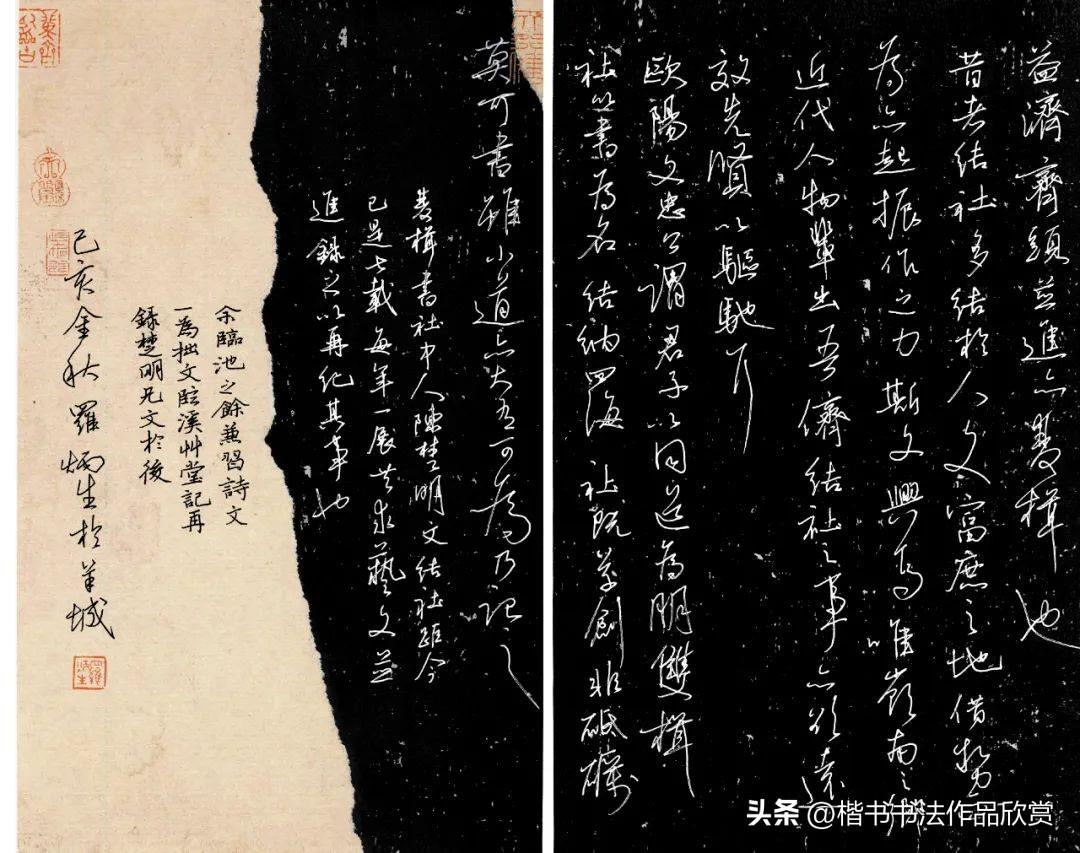 益濟齊頭並進亦雙楫也
昔者结社多结於人文富庶之地借勢
為亦起振作之力斯文興焉唯嶺南之
近代人物輩出吾儕结社之事亦欲遠
效先賢以驅馳耳
歐陽文忠公謂君子以同道為朋雙楫
社以書為名结纳四海社既草創非砥礪
莫可書雖小道亦大有可為乃記之
雙楫書社中人陳楚明文结社距今
已是七載每年一展共求藝文並
進錄之以再纪其事也
余臨池之餘兼習詩文
一為拙文臨溪艸堂記再
錄楚明兄文於後
己亥金秋羅炳生於羊城
头条@楷书书法作品欣赏